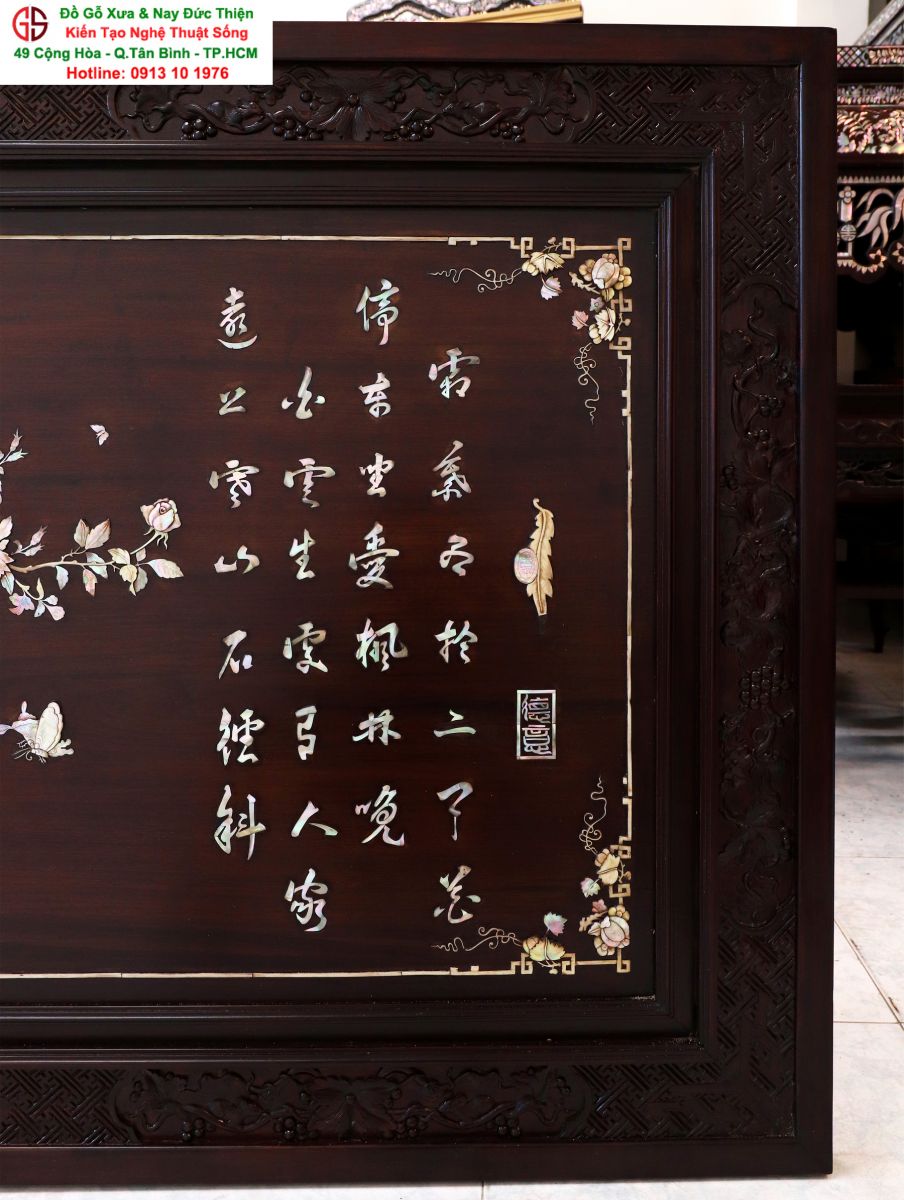 Đồ Gỗ Xưa & Nay Đức Thiện
Kiến Tạo Nghệ Thuật Sống
49 Cộng Hòa - Q.Tân Bình - TP.HCM
Hotline: 0913 10 1976
GS
遠上寒山石徑斜
白雲生處有人家
停車坐愛楓林晚
霜葉紅於二月花